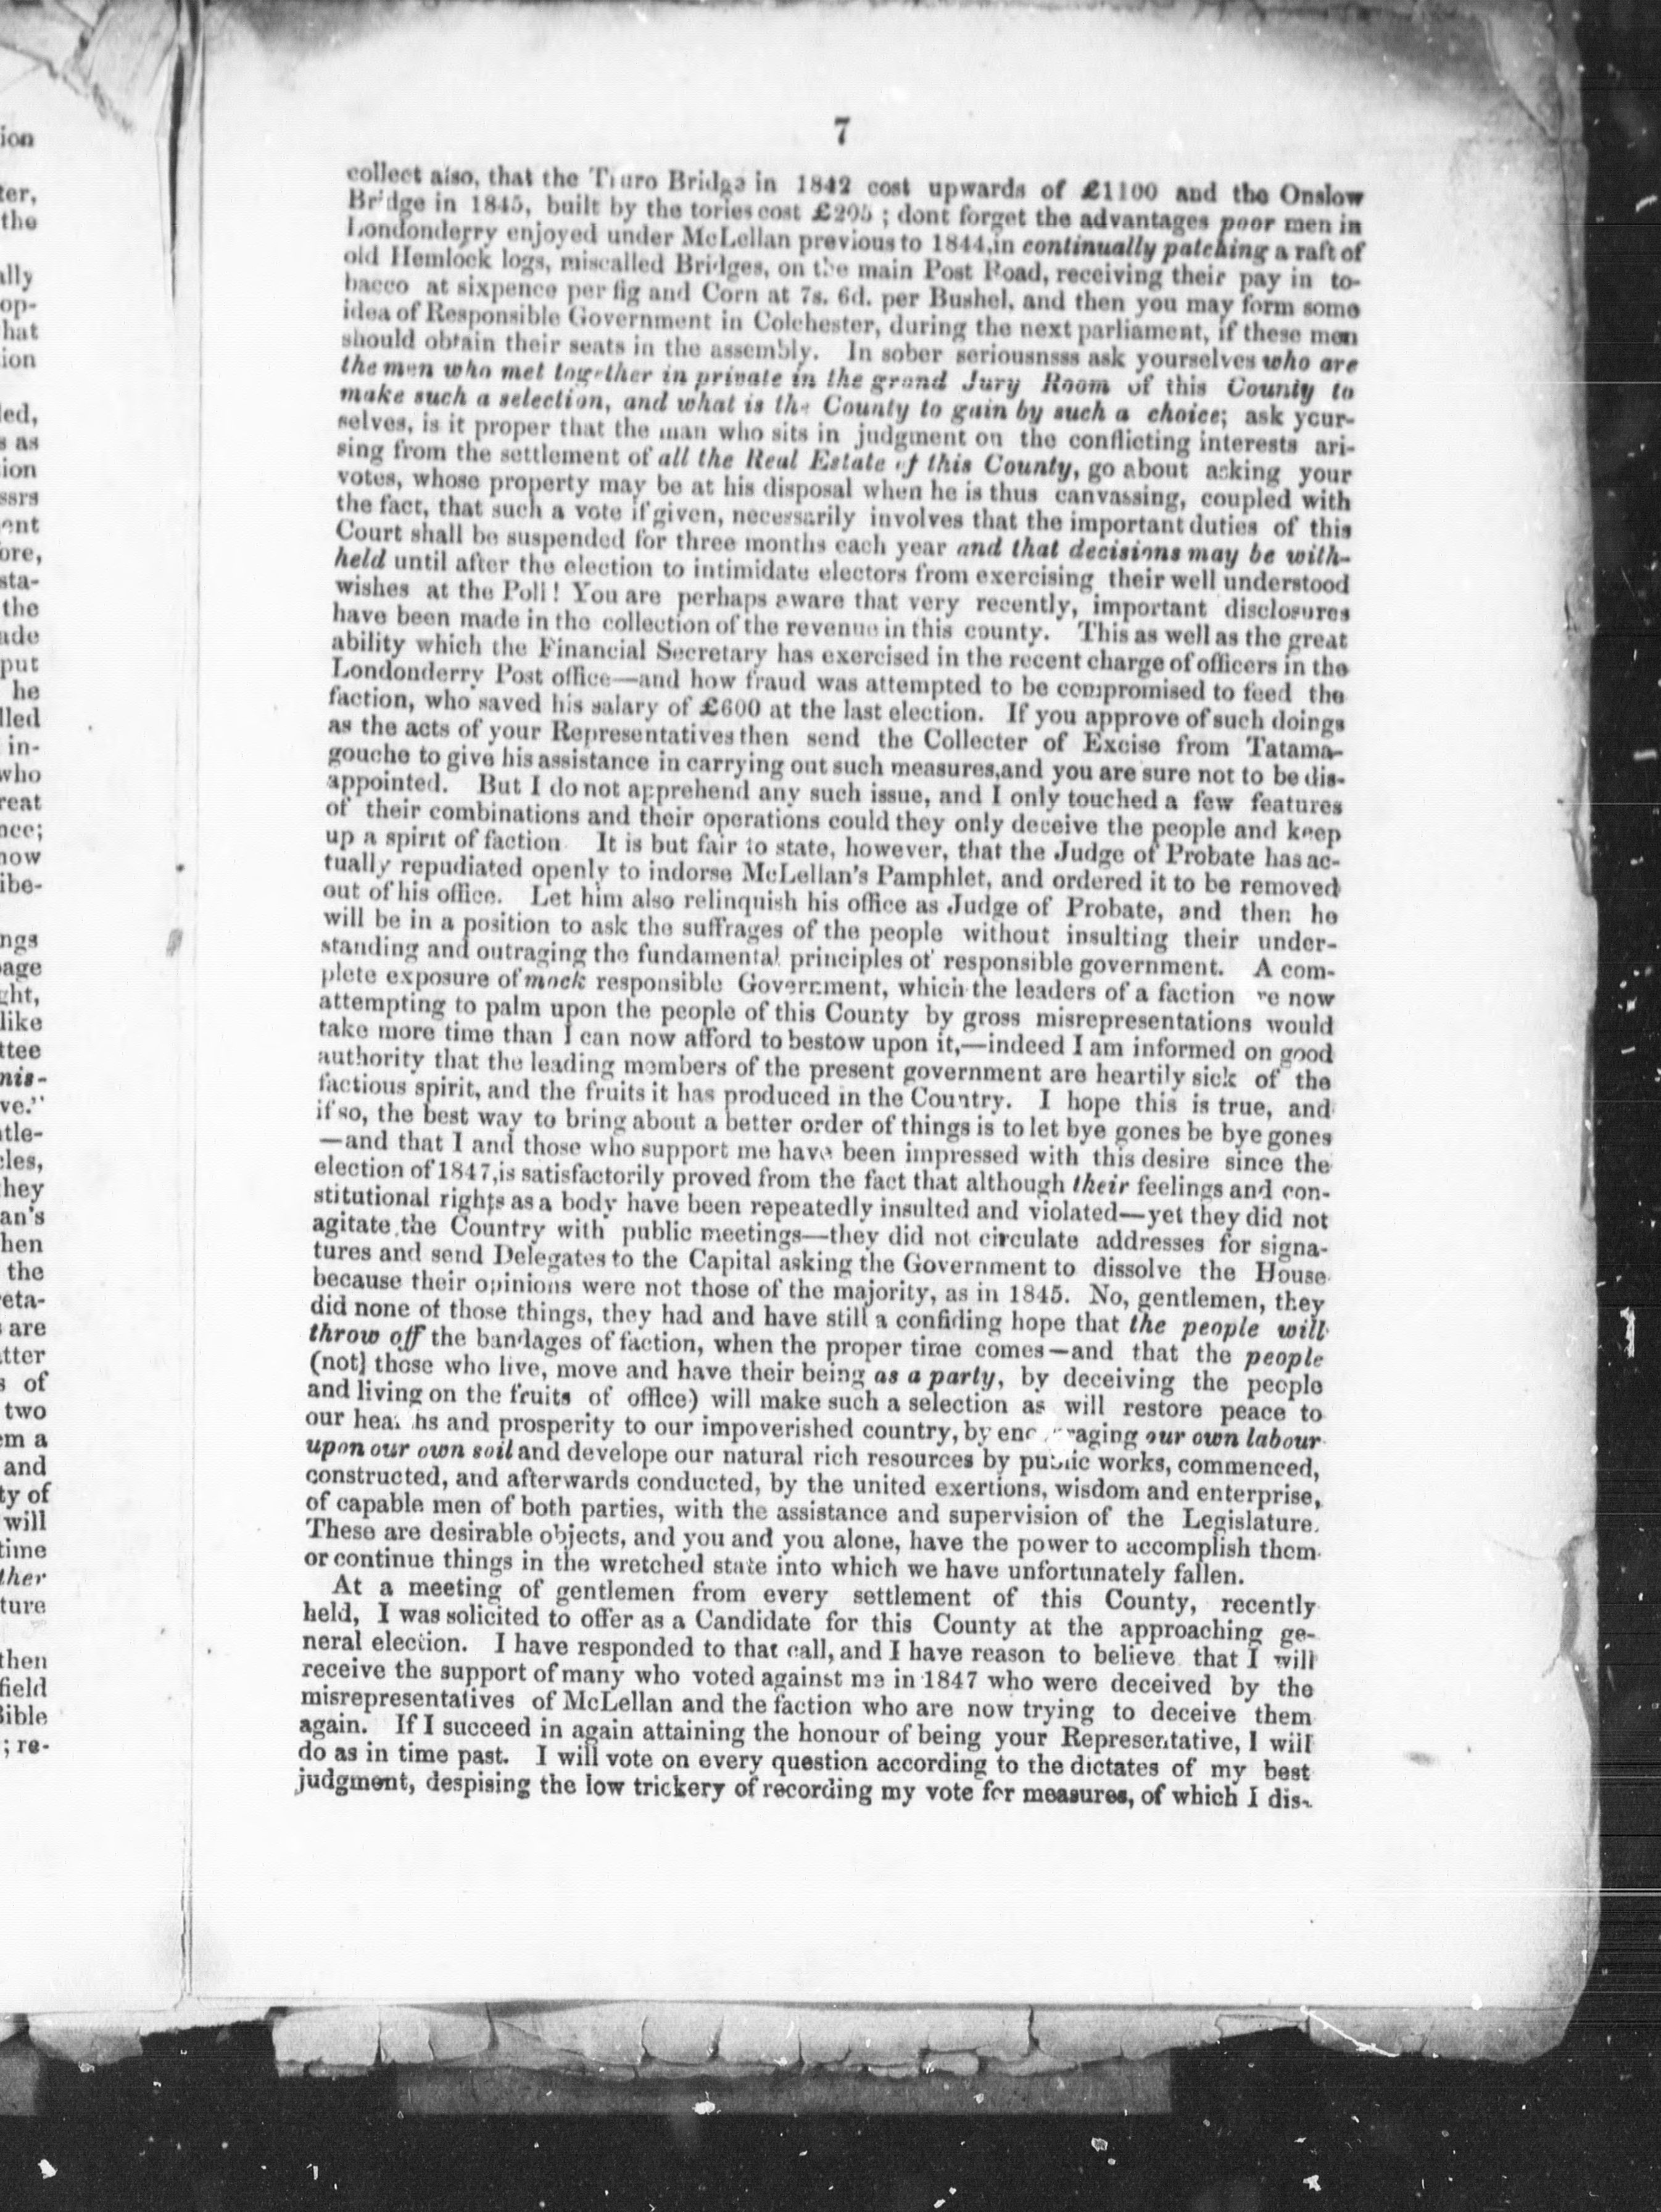 7
collect also, that the Truro Bridge in 1842 cost upwards of £1100 and the Onslow
Bridge in 1845, built by the tories cost £205 ; dont forget the advantages poor men in
Londonderry enjoyed under McLellan previous to 1844,in continually patching a raft of
old Hemlock logs, miscalled Bridges, on the main Post Road, receiving their pay in to-
bacco at sixpence per fig and Corn at 7s. 6d. per Bushel, and then you may form some
idea of Responsible Government in Colchester, during the next parliament, if these men
should obtain their seats in the assembly. In sober seriousnsss ask yourselves who are
the men who met together in private in the grand Jury Room of this County to
make such a selection, and what is the County to gain by such a choice; ask your-
selves, is it proper that the man who sits in judgment on the conflicting interests ari-
sing from the settlement of all the Real Estate of this County, go about asking your
votes, whose property may be at his disposal when he is thus canvassing, coupled with
the fact, that such a vote if given, necessarily involves that the important duties of this
Court shall be suspended for three months each year and that decisions may be with-
held until after the election to intimidate electors from exercising their well understood
wishes at the Poll! You are perhaps aware that very recently, important disclosures
have been made in the collection of the revenue in this county. This as well as the great
ability which the Financial Secretary has exercised in the recent charge of officers in the
Londonderry Post office—and how fraud was attempted to be compromised to feed the
faction, who saved his salary of £600 at the last election. If you approve of such doings
as the acts of your Representatives then send the Collecter of Excise from Tatama-
gouche to give his assistance in carrying out such measures,and you are sure not to be dis-
appointed. But I do not apprehend any such issue, and I only touched a few features
of their combinations and their operations could they only deceive the people and keep
up a spirit of faction It is but fair to state, however, that the Judge of Probate has ac-
tually repudiated openly to indorse McLellan's Pamphlet, and ordered it to be removed
out of his office. Let him also relinquish his office as Judge of Probate, and then he
will be in a position to ask the suffrages of the people without insulting their under-
standing and outraging the fundamental principles of responsible government. A com-
plete exposure of mock responsible Government, which the leaders of a faction re now
attempting to palm upon the people of this County by gross misrepresentations would
take more time than I can now afford to bestow upon it,—indeed I am informed on good
authority that the leading members of the present government are heartily sick of the
factious spirit, and the fruits it has produced in the Country. I hope this is true, and
if so, the best way to bring about a better order of things is to let bye gones be bye gones
—and that I and those who support me have been impressed with this desire since the
election of 1847,is satisfactorily proved from the fact that although their feelings and con-
stitutional rights as a body have been repeatedly insulted and violated—yet they did not
agitate the Country with public meetings—they did not circulate addresses for signa-
tures and send Delegates to the Capital asking the Government to dissolve the House
because their opinions were not those of the majority, as in 1845. No, gentlemen, they
did none of those things, they had and have still a confiding hope that the people will
throw off the bandages of faction, when the proper time comes—and that the people
(not] those who live, move and have their being as a party, by deceiving the people
and living on the fruits of office) will make such a selection as will restore peace to
our hea hs and prosperity to our impoverished country, by enc raging our own labour
upon our own soil and develope our natural rich resources by public works, commenced,
constructed, and afterwards conducted, by the united exertions, wisdom and enterprise,
of capable men of both parties, with the assistance and supervision of the Legislature.
These are desirable objects, and you and you alone, have the power to accomplish them
or continue things in the wretched state into which we have unfortunately fallen.
At a meeting of gentlemen from every settlement of this County, recently
held, I was solicited to offer as a Candidate for this County at the approaching ge-
neral election. I have responded to that call, and I have reason to believe that I will
receive the support of many who voted against me in 1847 who were deceived by the
misrepresentatives of McLellan and the faction who are now trying to deceive them
again. If I succeed in again attaining the honour of being your Representative, I will
do as in time past. I will vote on every question according to the dictates of my best
judgment, despising the low trickery of recording my vote for measures, of which I dis-